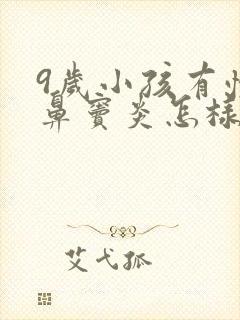 9歲小孩有
鼻竇炎怎樣
艾弋孤